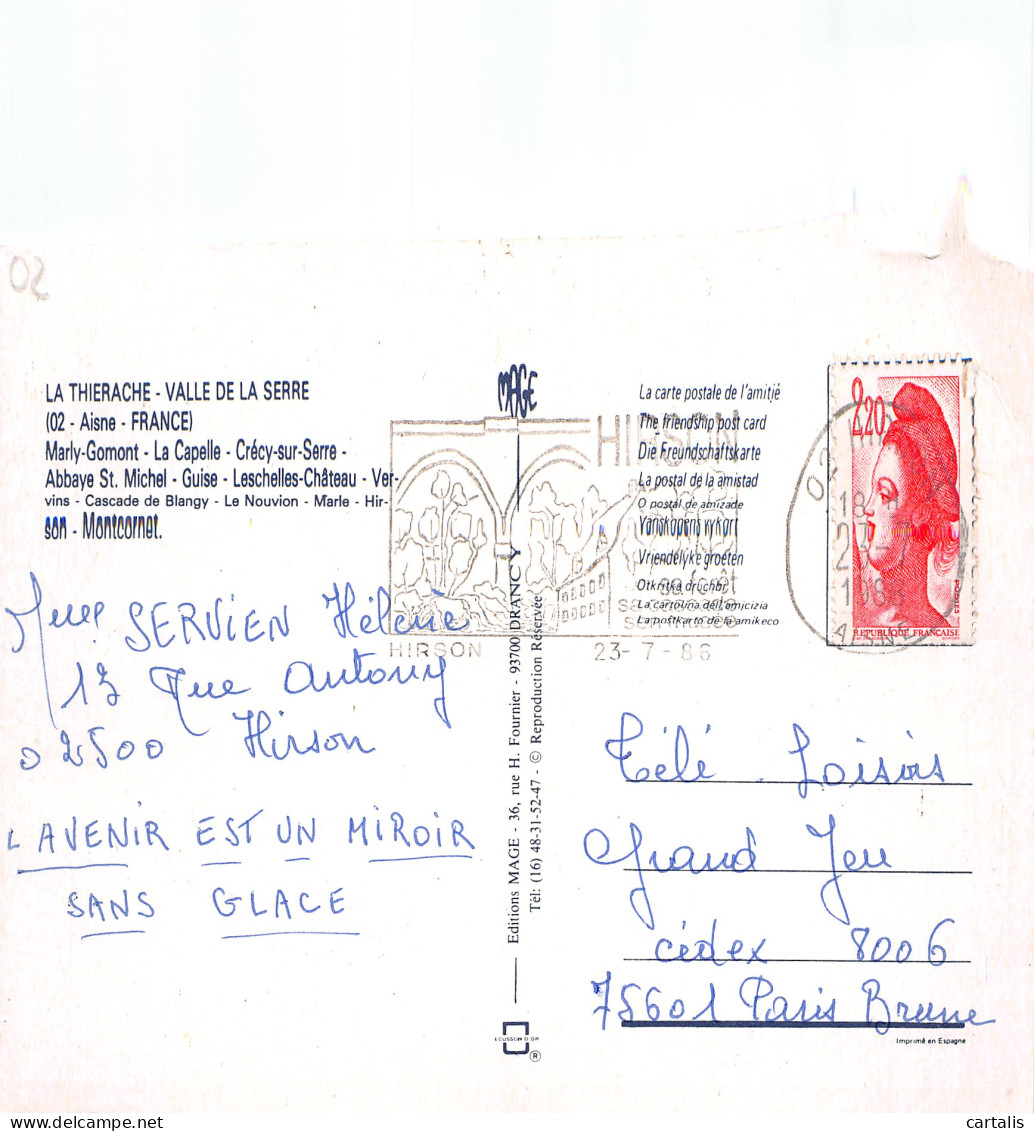 02
LA THIERACHE - VALLE DE LA SERRE
(02 - Aisne - FRANCE)
Marly-Gomont - La Capelle - Crécy-sur-Serre -
Abbaye St. Michel - Guise - Leschelles-Château - Ver-
vins - Cascade de Blangy - Le Nouvion - Marle - Hir-
son - Montcornet.
MAGE
La carte postale de l'amitié
The friendship post card
Die Freundschaftskarte
La postal de la amistad
O postal de amizade
Vanskapens vykort
Vriendelyke groeten
Otkritka druchbi
La cartolina dell'amicizia
La postkarto de la amikeco
HIRSON
sa forêt
HIRSON
23-7-86
2,20
POSTES
REPUBLIQUE FRANCAISE
02
18
23-7
198
AISNE
Mme SERVIEN Hélène
13 rue Antony
02500 Hirson
L'AVENIR EST UN MIROIR
SANS GLACE
Editions MAGE - 36, rue H. Fournier - 93700 DRANCY
Tél: (16) 48-31-52-47 - © Reproduction Réservée
Télé Loisirs
Grand Jeu
cédex 8006
75601 Paris Brune
ECUSSON D'OR
®
Imprimé en Espagne
cartalis